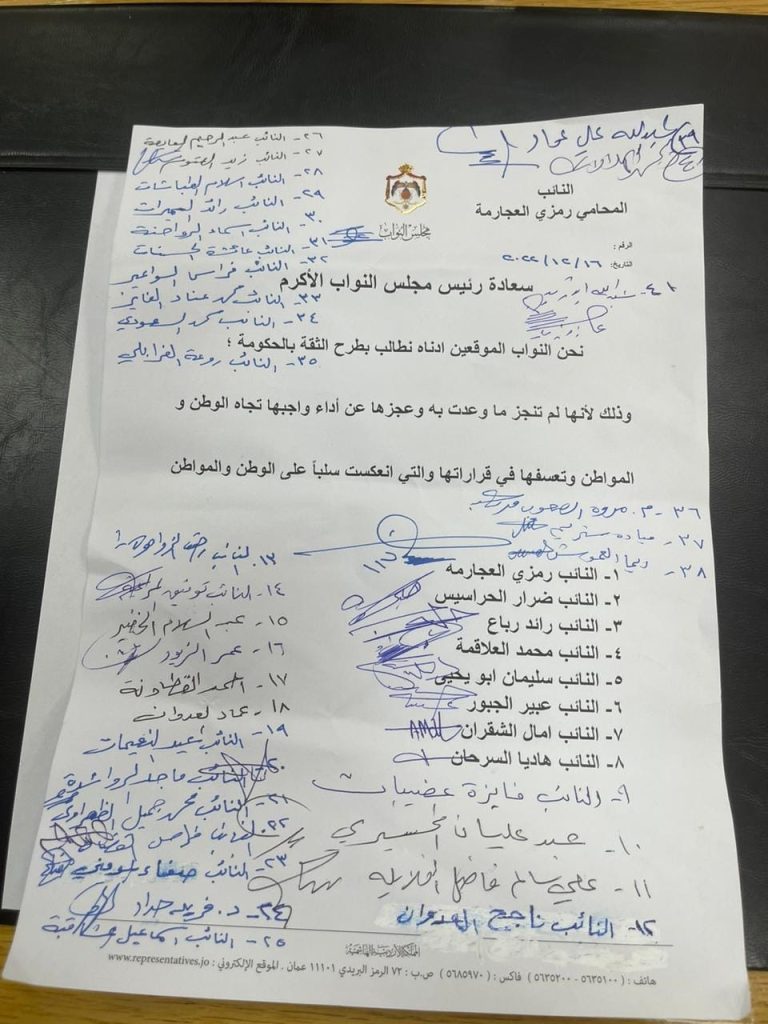 النائب
المحامي رمزي العجارمة
مجلس النواب
الرقم :
التاريخ: ٢٠٢٢/١٢/١٦
سعادة رئيس مجلس النواب الأكرم
نحن النواب الموقعين ادناه نطالب بطرح الثقة بالحكومة ؛
وذلك لأنها لم تنجز ما وعدت به وعجزها عن أداء واجبها تجاه الوطن و
المواطن وتعسفها في قراراتها والتي انعكست سلباً على الوطن والمواطن
١- النائب رمزي العجارمه
٢- النائب ضرار الحراسيس
٣- النائب رائد رباع
٤- النائب محمد العلاقمة
٥- النائب سليمان ابو يحيى
٦- النائب عبير الجبور
٧- النائب امال الشقران
٨- النائب هاديا السرحان
٩- النائب فايزة عضيبات
١٠- عبد عليان
١١- سالم فاضل
١٢- النائب ناجح العدوان
١٣- النائب
١٤- النائب توفيق
١٥- عبد السلام الخضير
١٦- عمر الزيود
١٧- احمد القطاونة
١٨- عماد العدوان
١٩- النائب عيد النعيمات
٢٠- النائب ماجد الرواشدة
٢١- النائب محمد جميل الظهراوي
٢٢- النائب فراس
٢٣- النائب صفاء المومني
٢٤- د. فريد حداد
٢٥- النائب اسماعيل مشاقبة
٢٦- النائب عبد الرحيم المعايعة
٢٧- النائب زيد العتوم
٢٨- النائب اسلام الطباشات
٢٩- النائب رائد السميرات
٣٠- النائب اسماء الرواحنة
٣١- النائب عائشة الحسنات
٣٢- النائب فراس السواعير
٣٣- النائب محمد عناد الفايز
٣٤- النائب محمد السعودي
٣٥- النائب روعة الغرابلي
٣٦- م. مروه الصعوب
٣٧- ميادة شريم
٣٨- ريما العموش
٣٩
٤٠
٤١- عبدالله ابو زيد
المملكة الأردنية الهاشمية
هاتف : ( ٥٦٣٥١٠٠ - ٥٦٣٥٢٠٠ ) فاكس : ( ٥٦٨٥٩٧٠ ) ص.ب : ٧٢ الرمز البريدي ١١١٠١ عمان . الموقع الإلكتروني : www.representatives.jo